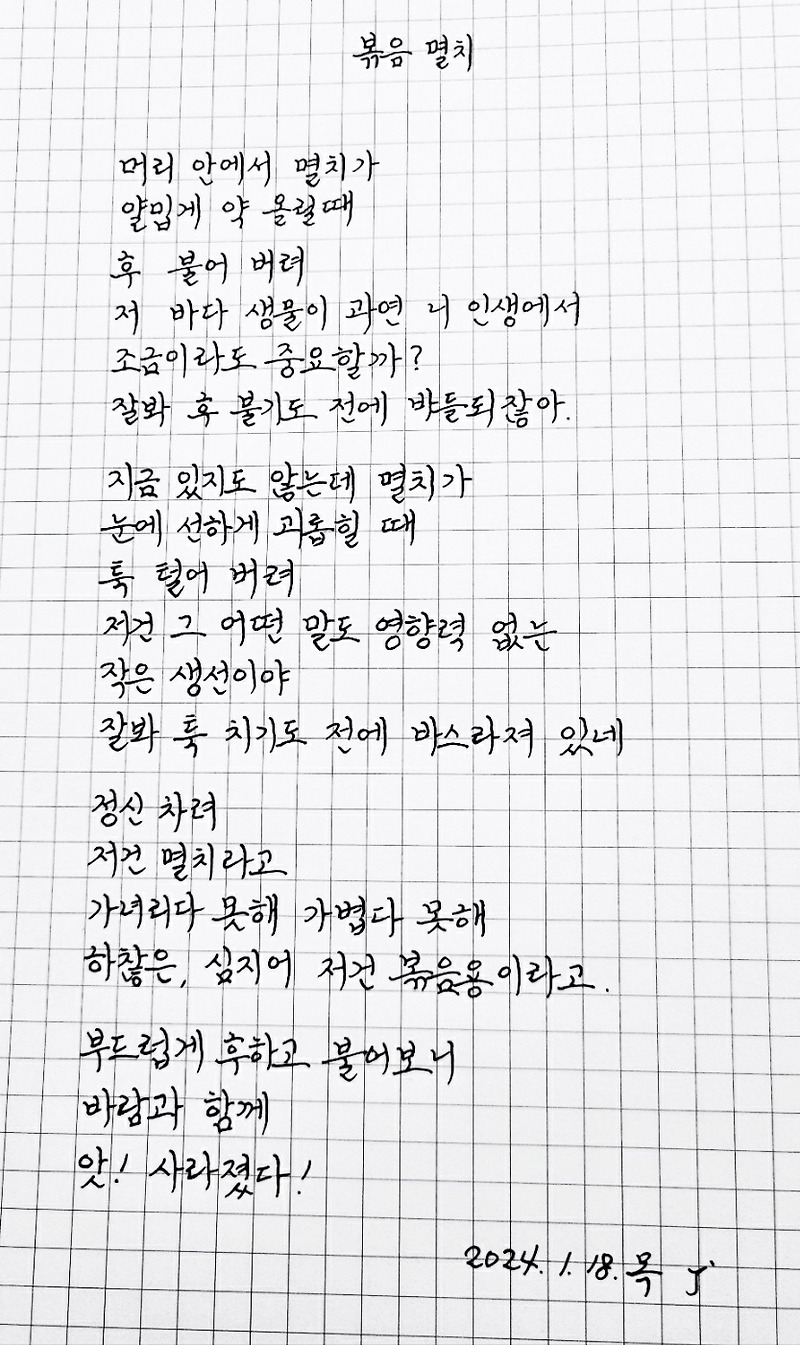 볶음 멸치
머리 안에서 멸치가
얄밉게 약 올릴때
후 불어 버려
저 바다 생물이 과연 니 인생에서
조금이라도 중요할까?
잘봐 후 불기도 전에 바들되잖아.
지금 있지도 않는데 멸치가
눈에 선하게 괴롭힐 때
툭 털어 버려
저건 그 어떤 말도 영향력 없는
작은 생선이야
잘봐 툭 치기도 전에 바스라져 있네
정신 차려
저건 멸치라고
가녀리다 못해 가볍다 못해
하찮은, 심지어 저건 볶음용이라고.
부드럽게 후하고 불어보니
바람과 함께
앗! 사라졌다!
2024. 1. 18. 목 J